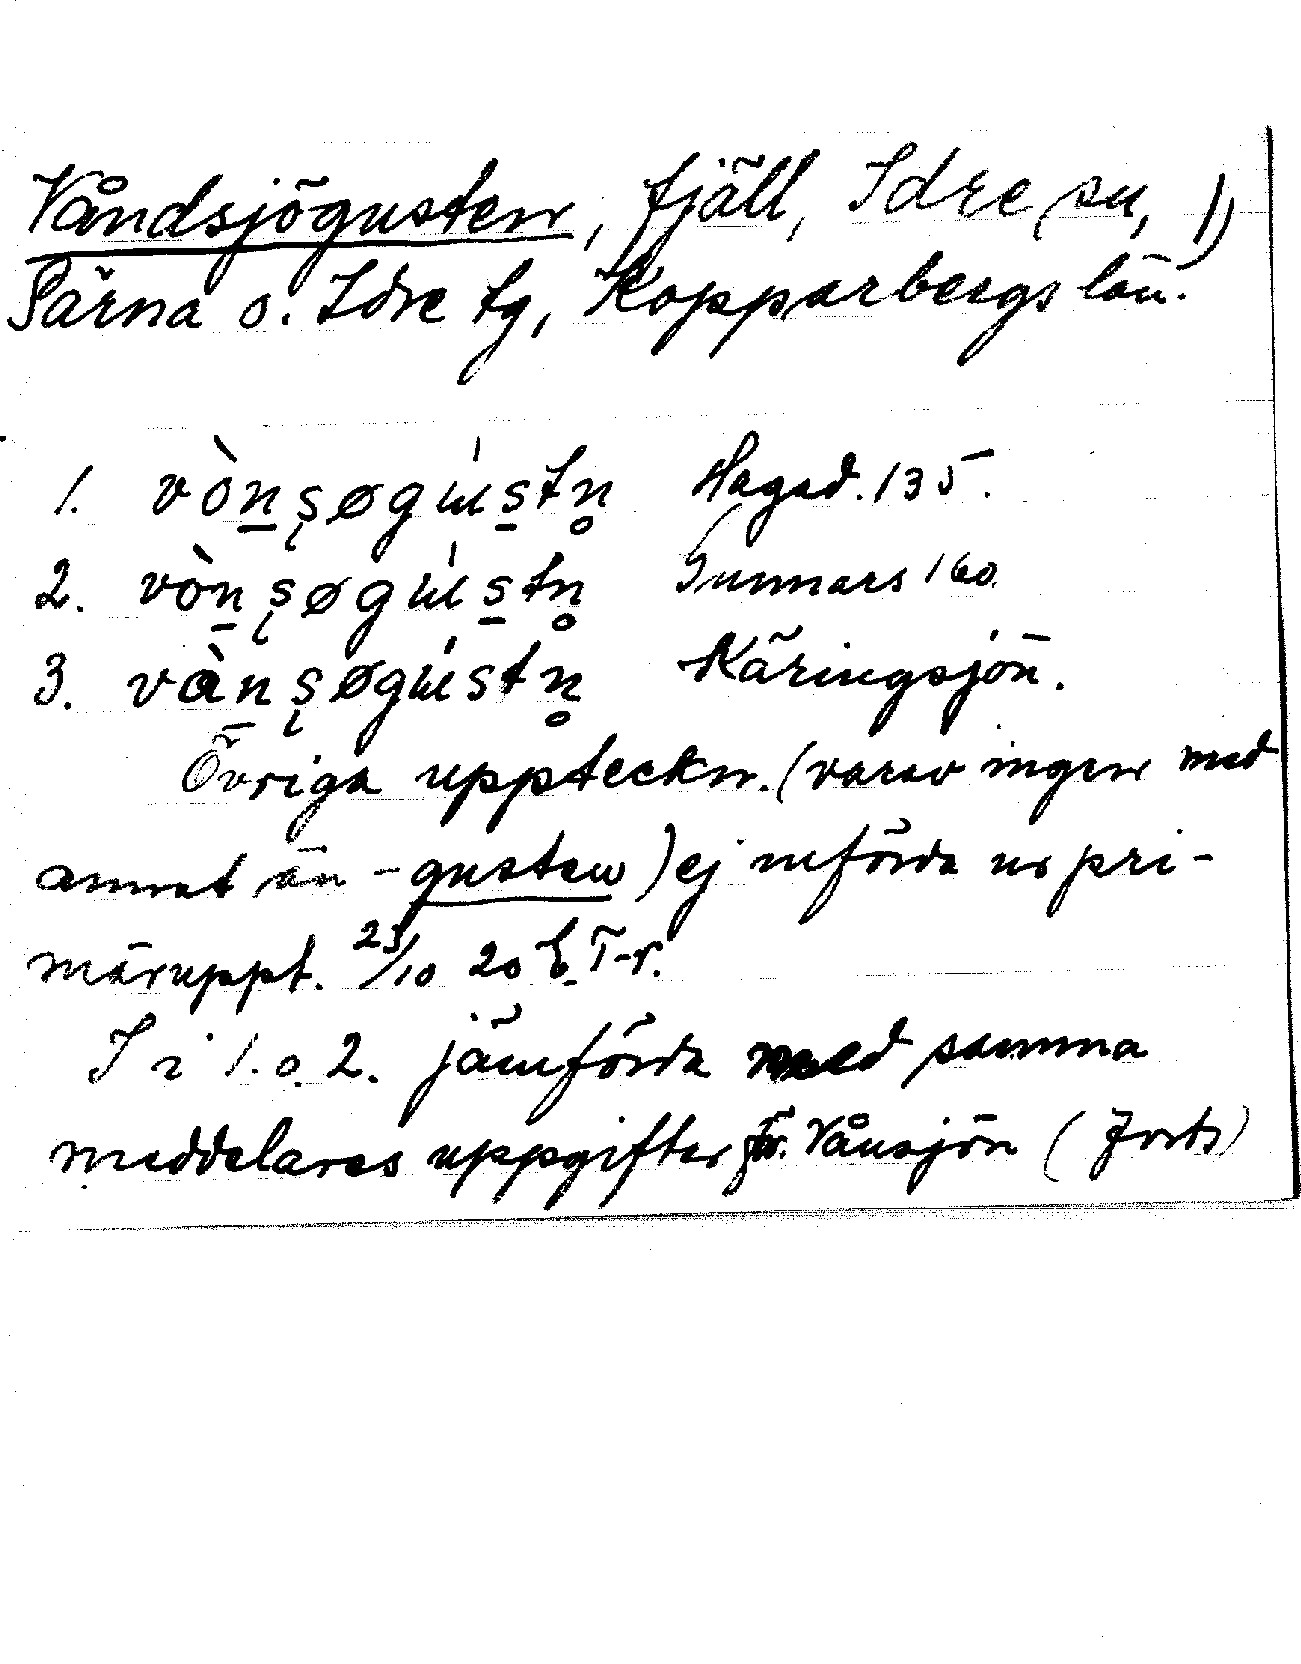 Våndsjögusten, fjäll, Idre sn, 1)
Särna o. Idre tg, Kopparbergs län.
1. vòn̲ʂøgɯ́s̲tn̥ Hagad. 135.
2. vòn̲ʂøgɯ́s̲tn̥ Gunnars 160
3. vànʂøgɯ́stn̥ Käringsjön.
Övriga uppteckn. (varav ingen med
annat än -gusten) ej införda ur pri-
märuppt. 23/10 20 E. T-r.
I i 1. o. 2. jämförda med samma
meddelares uppgifter fr. Vånsjön (forts)